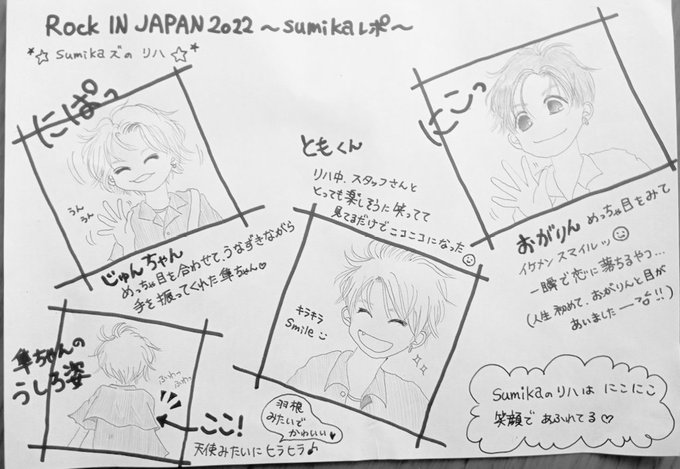 Rock IN JAPAN 2022 〜sumikaレポ〜
☆sumikaズの リハ☆
にぱっ
うん
うん
じゅんちゃん
めっちゃ目を合わせて、うなずきながら
手を振ってくれた隼ちゃん♡
ともくん
リハ中、スタッフさんと
とっても楽しそうに笑ってて
見てるだけでニコニコになった
キラキラ
Smile
にこっ
おがりん めっちゃ目をみて
イケメンスマイルッ
一瞬で恋に落ちるやつ…
(人生初めて、おがりんと目が
あいました
隼ちゃんの
うしろ姿
ふわっ
ふわっ
ここ!
天使みたいにヒラヒラ♪
羽根
みたいで
かわいい♥
sumikaのリハは にこにこ
笑顔で あふれてる♡